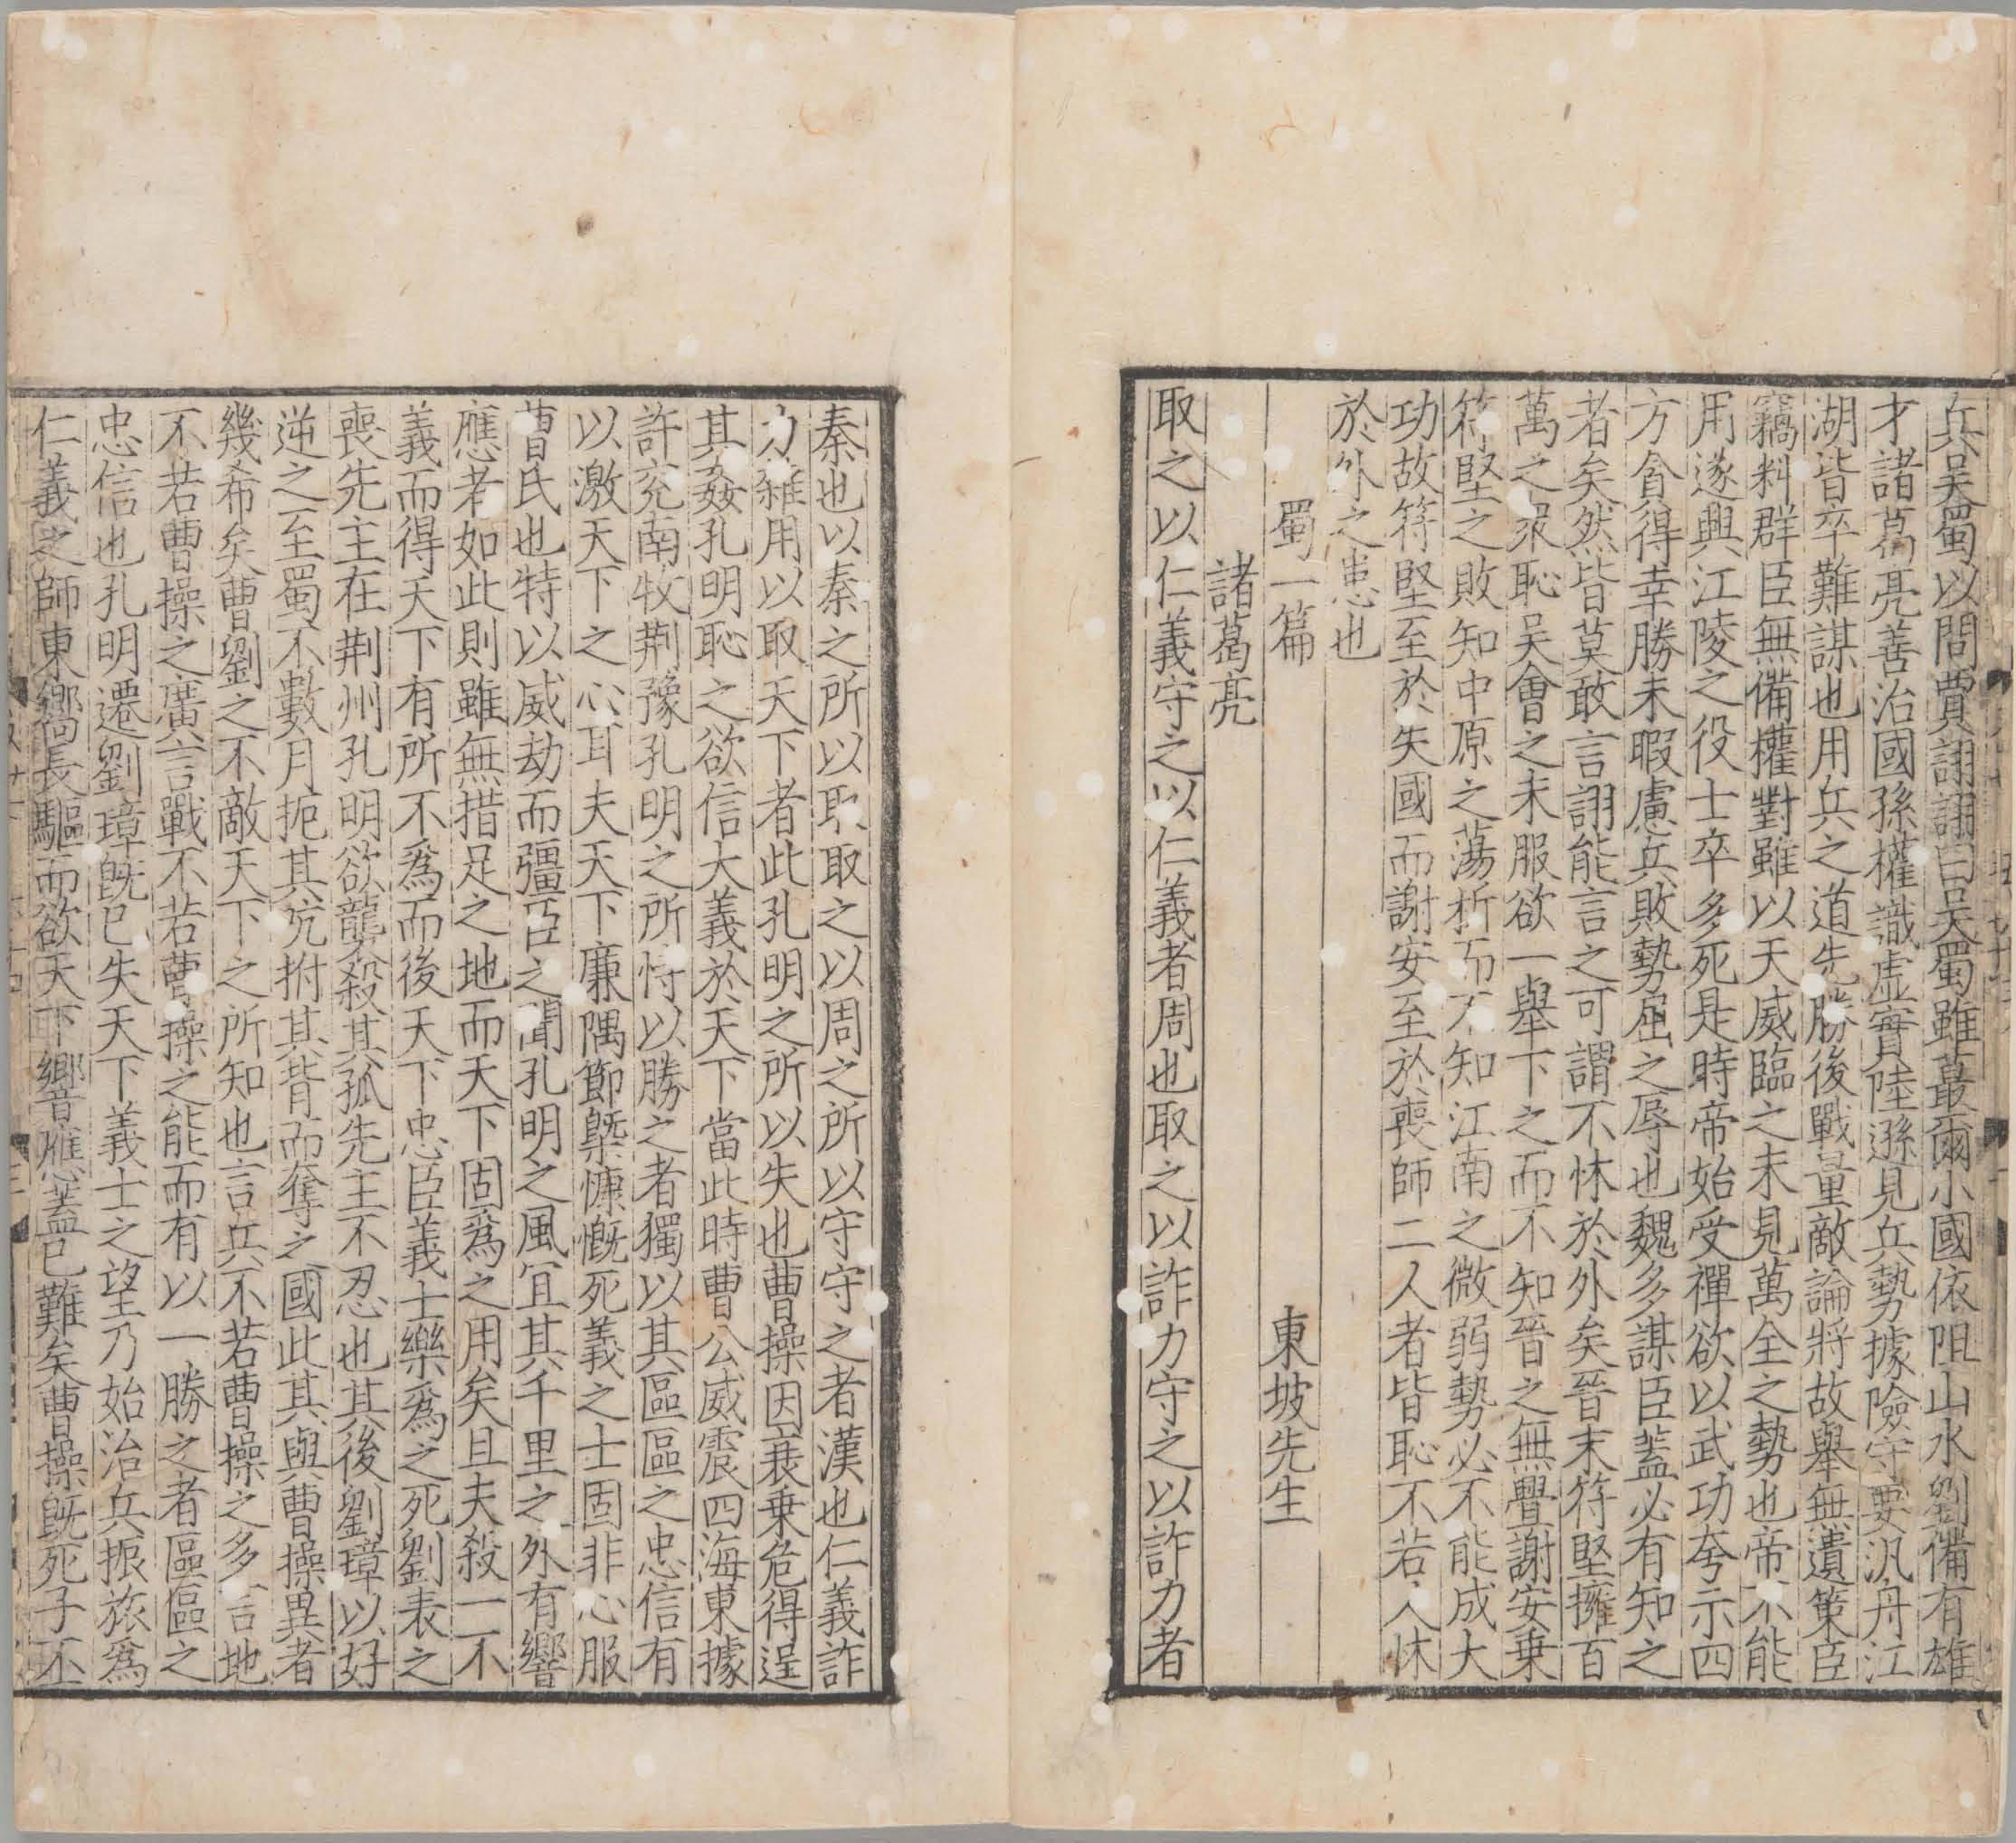 兵吴蜀以問賈詡詡曰吴蜀雖蕞爾小國依阻山水劉備有雄
才諸葛亮善治國孫權識虛實陸遜見兵勢據險守要汎舟江
湖皆卒難謀也用兵之道先勝後戰量敵論將故舉無遺策臣
竊料群臣無備權對雖以天威臨之未見萬全之勢也帝不能
用遂興江陵之役士卒多死是時帝始受禪欲以武功夸示四
方貪得幸勝未暇慮兵敗勢屈之辱也魏多謀臣蓋必有知之
者矣然皆莫敢言詡能言之可謂不怵於外矣晉末苻堅擁百
萬之衆恥吴會之未服欲一舉下之而不知晉之無舋謝安乗
苻堅之敗知中原之蕩析而不知江南之微弱勢必不能成大
功故苻堅至於失國而謝安至於喪師二人者皆恥不若人怵
於外之患也
蜀一篇 東坡先生
諸葛亮
取之以仁義守之以仁義者周也取之以詐力守之以詐力者
秦也以秦之所以取取之以周之所以守守之者漢也仁義詐
力雜用以取天下者此孔明之所以失也曹操因衰乗危得逞
其姦孔明恥之欲信大義於天下當此時曹公威震四海東據
許兖南牧荆豫孔明之所恃以勝之者獨以其區區之忠信有
以激天下之心耳夫天下廉隅節槩慷慨死義之士固非心服
曹氏也特以威劫而彊臣之聞孔明之風冝其千里之外有響
應者如此則雖無措足之地而天下固爲之用矣且夫殺一不
義而得天下有所不爲而後天下忠臣義士樂爲之死劉表之
喪先主在荆州孔明欲襲殺其孤先主不忍也其後劉璋以好
逆之至蜀不數月扼其亢拊其背而奪之國此其與曹操異者
幾希矣曹劉之不敵天下之所知也言兵不若曹操之多言地
不若曹操之廣言戰不若曹操之能而有以一勝之者區區之
忠信也孔明遷劉璋旣已失天下義士之望乃始治兵振旅爲
仁義之師東嚮長驅而欲天下響應蓋已難矣曹操旣死子丕